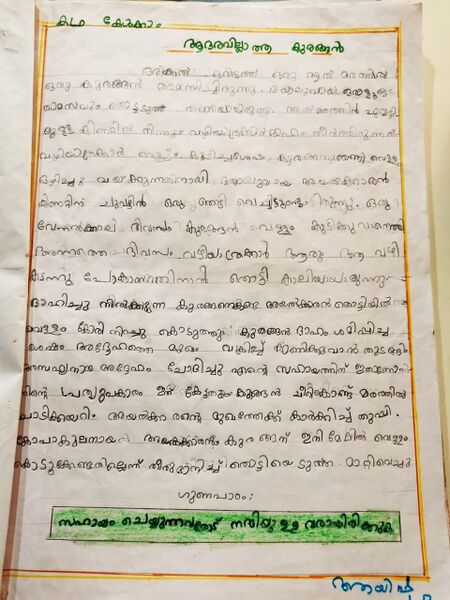 കഥ കേൾക്കാം
ആദരവില്ലാത്ത കുരങ്ങൻ
ഒരിക്കൽ ഒരിടത്ത് ഒരു ആൽ മരത്തിൽ
ഒരു കുരങ്ങൻ താമസിച്ചിരുന്നു. ദയാലുവായ
താമസവും തൊട്ടടുത്ത് തന്നെയായിരുന്നു. ആൽമരത്തിൻ ചുവട്ടി
ലുള്ള കിണറിൽ നിന്നും വഴിയാത്രക്കാർ ദാഹം തീർത്തിരുന്നത്
വഴിയാത്രക്കാർ വെള്ളം കുടിച്ചശേഷം കുരങ്ങനുവേണ്ടി വെള്ളം
ഒഴിച്ചു വയ്ക്കുന്നതിനായി ദയാലുവായ അയൽക്കാരൻ
കിണറിന് ചുവട്ടിൽ ഒരു തൊട്ടി വെച്ചിട്ടുണ്ടായിരുന്നു. ഒരു
വേനൽക്കാല ദിവസം കുരങ്ങൻ വെള്ളം കുടിക്കുവാനെത്തി
അന്നത്തെ ദിവസം വഴിയാത്രക്കാർ ആരും ആ വഴി
കടന്നു പോകാഞ്ഞതിനാൽ തൊട്ടി കാലിയായിരുന്നു.
ദാഹിച്ചു നിൽക്കുന്ന കുരങ്ങനുകണ്ട അയൽക്കാരൻ തൊട്ടിയിൽ
വെള്ളം കോരി നിറച്ചു കൊടുത്തു. കുരങ്ങൻ ദാഹം ശമിപ്പിച്ച
ശേഷം അദ്ദേഹത്തെ മുഖം വക്രിച്ച് കാണിക്കുവാൻ തുടങ്ങി.
അദ്ദേഹം ചോദിച്ചു എന്റെ സഹായത്തിന് ഇങ്ങനാണോ
നിന്റെ പ്രത്യുപകാരം ഇത് കേട്ടതും കുരങ്ങൻ ചീറിക്കൊണ്ട് മരത്തിൽ
ചാടിക്കയറി. അയൽക്കാരന്റെ മുഖത്തേക്ക് കാർക്കിച്ച് തുപ്പി.
കോപാകുലനായ അയൽക്കാരൻ കുരങ്ങന് ഇനി മേലിൽ വെള്ളം
കൊടുക്കേണ്ടതില്ലെന്ന് തീരുമാനിച്ച് തൊട്ടിയെടുത്തു മാറ്റിവെച്ചു
ഗുണപാഠം:
സഹായം ചെയ്യുന്നവരോട് നന്ദിയുള്ളവരായിരിക്കുക
ആയിഷ